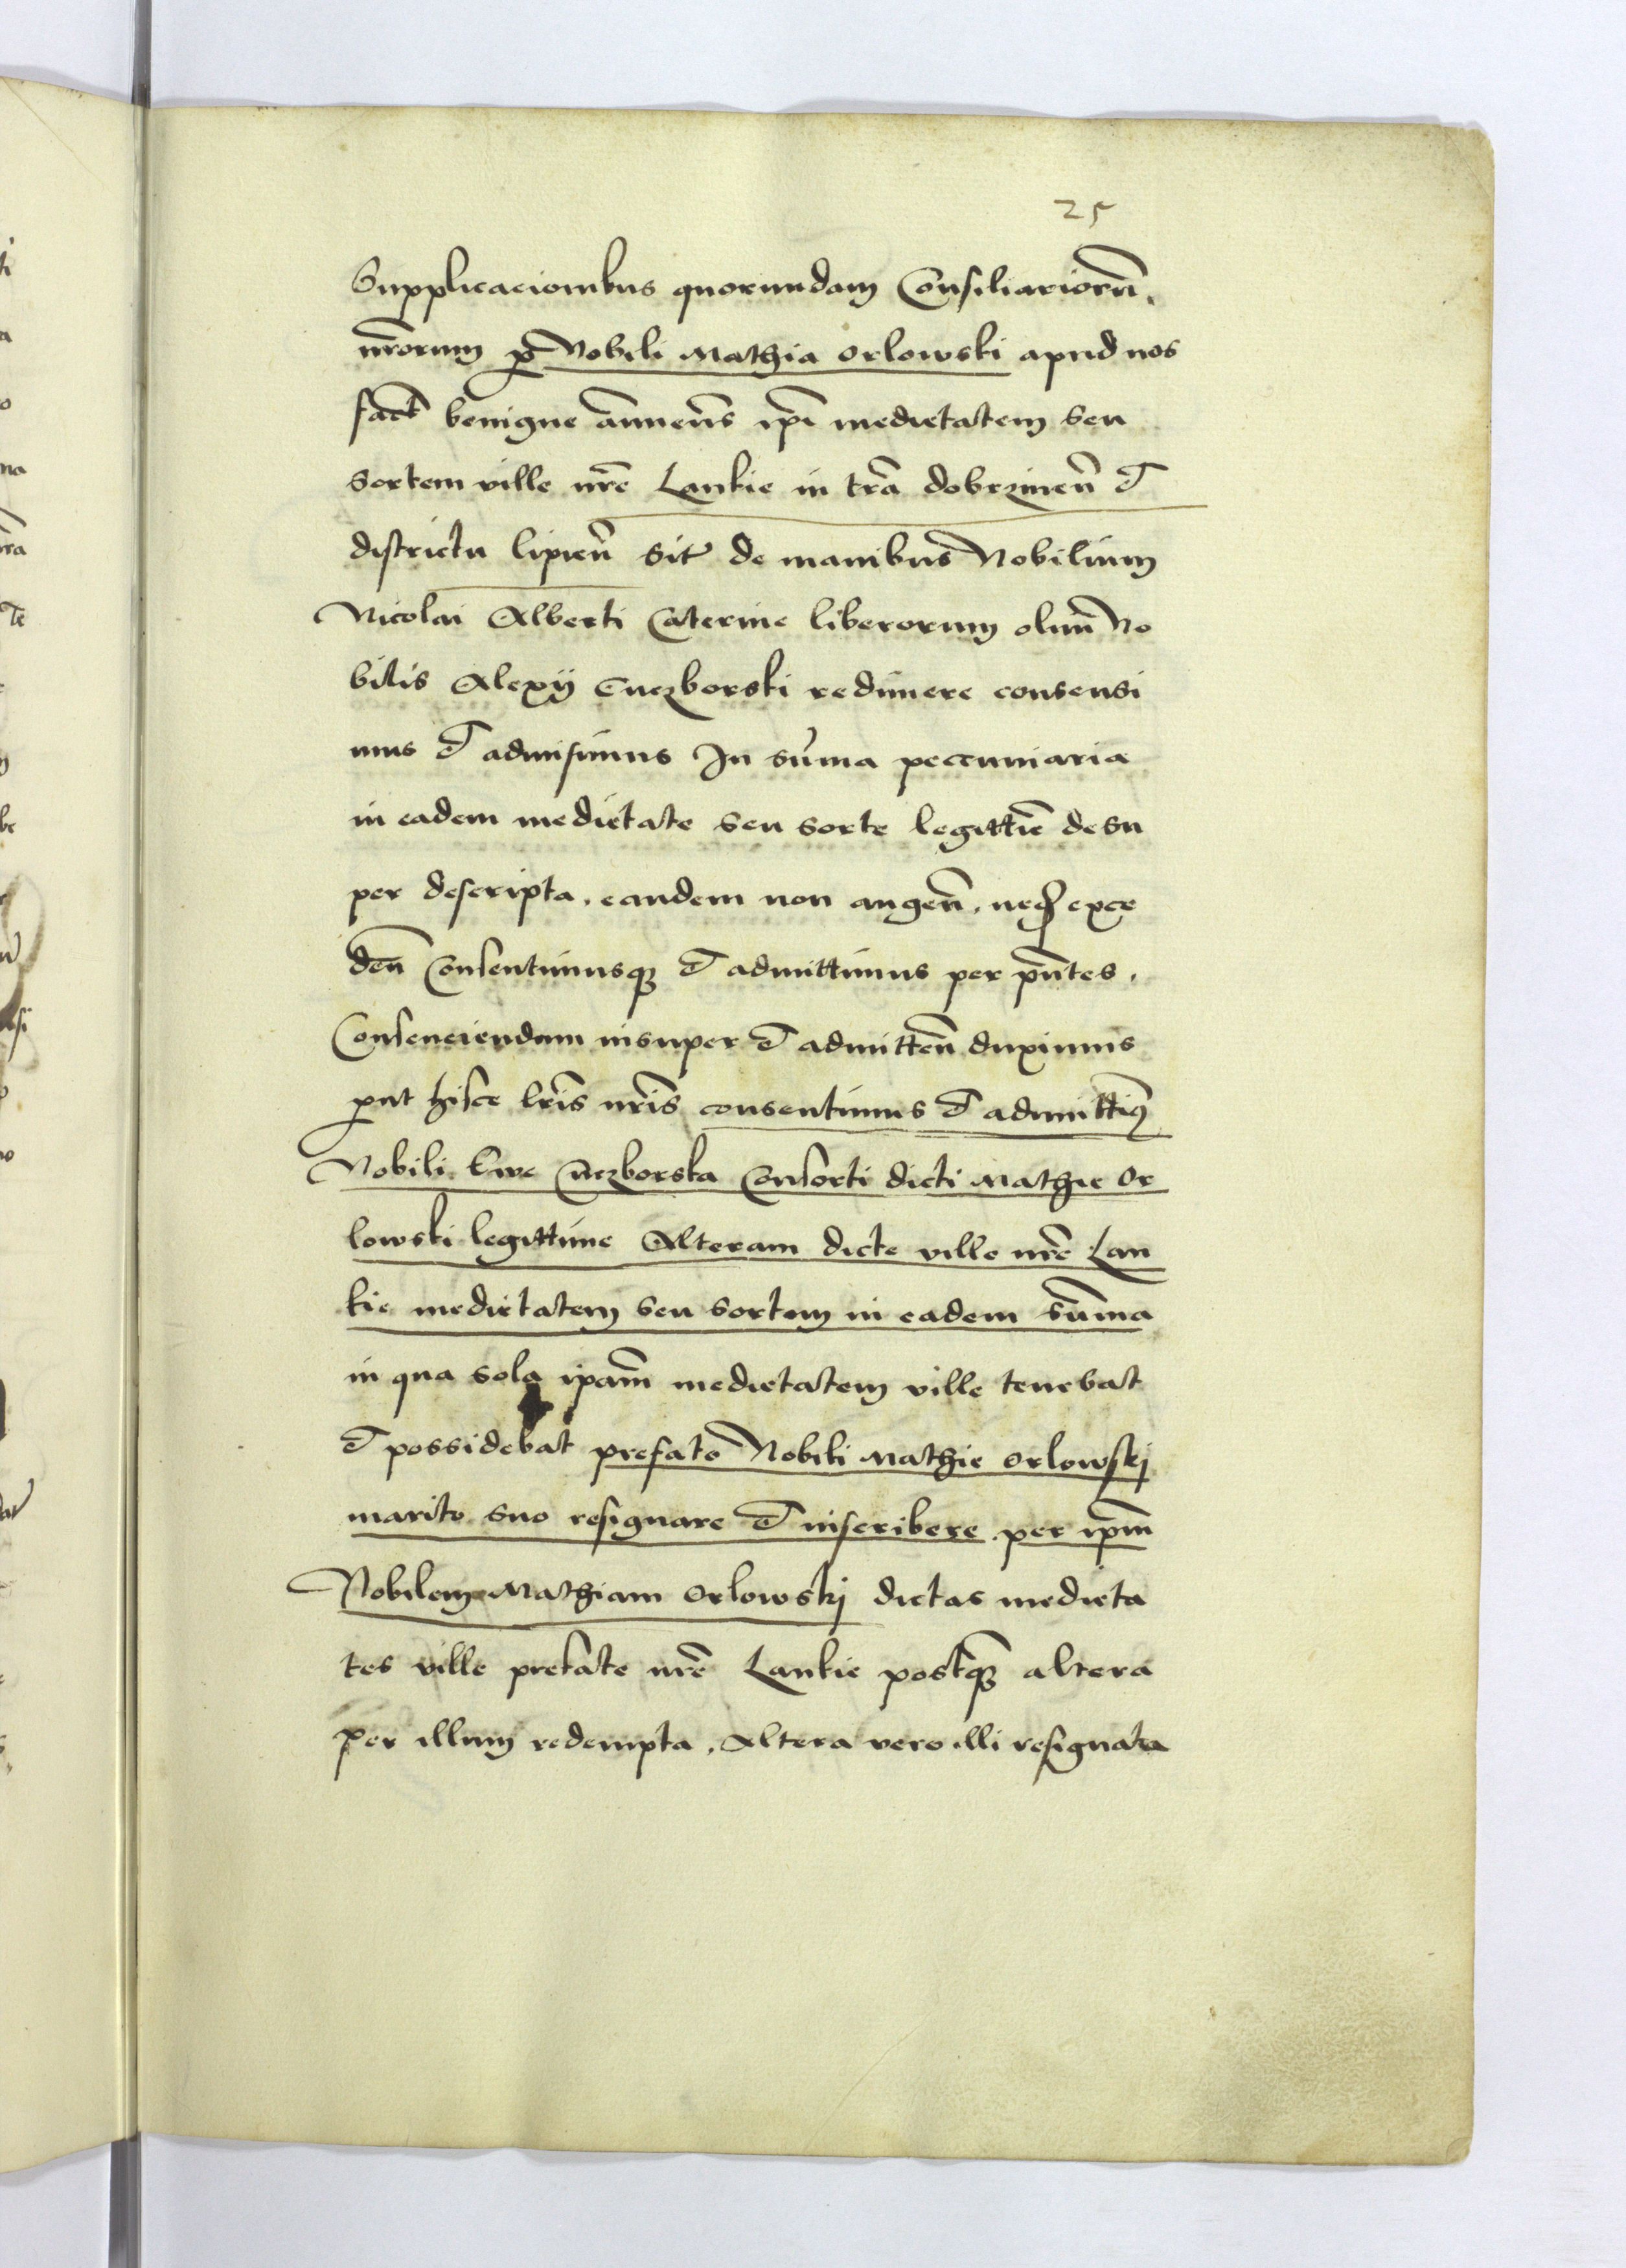 25
Supplicacionibus quorundam Consiliariorū.
nrōrum p Nobili Mathia Orlowski apud nos
fact benigne annuens ipī medietatem seu
sortem ville nrē Lankie in trā dobrzineñ et
districtu lipieñ sit de manibus Nobilium
Nicolai Alberti Caterine liberorum olim No
bilis Alexij Cuczborski redimere consensi
mus et admisimus In sūma peccuniaria
in eadem medietate seu sorte legittīe desu
per descripta. eandem non augeñ. neq exce
deñ Consentimusq et admittimus per pñtes.
Consenciendum insuper et admitteñ duximus
put hisce lrīs nrīs consentimus et admittim
Nobili Ewe Cuczborska Consorti dicti Mathie Or
lowski legittime Alteram dicte ville nrē Lan
kie medietatem seu sortem in eadem sūma
in qua sola ipam̄ medietatem ville tenebat
et possidebat prefato Nobili Mathie Orlowskj
marito suo resignare et inscribere per ipm̄
Nobilem Mathiam Orlowskj dictas medieta
tes ville prefate nrē Lankie postq altera
per illum redempta. Altera vero illi resignata